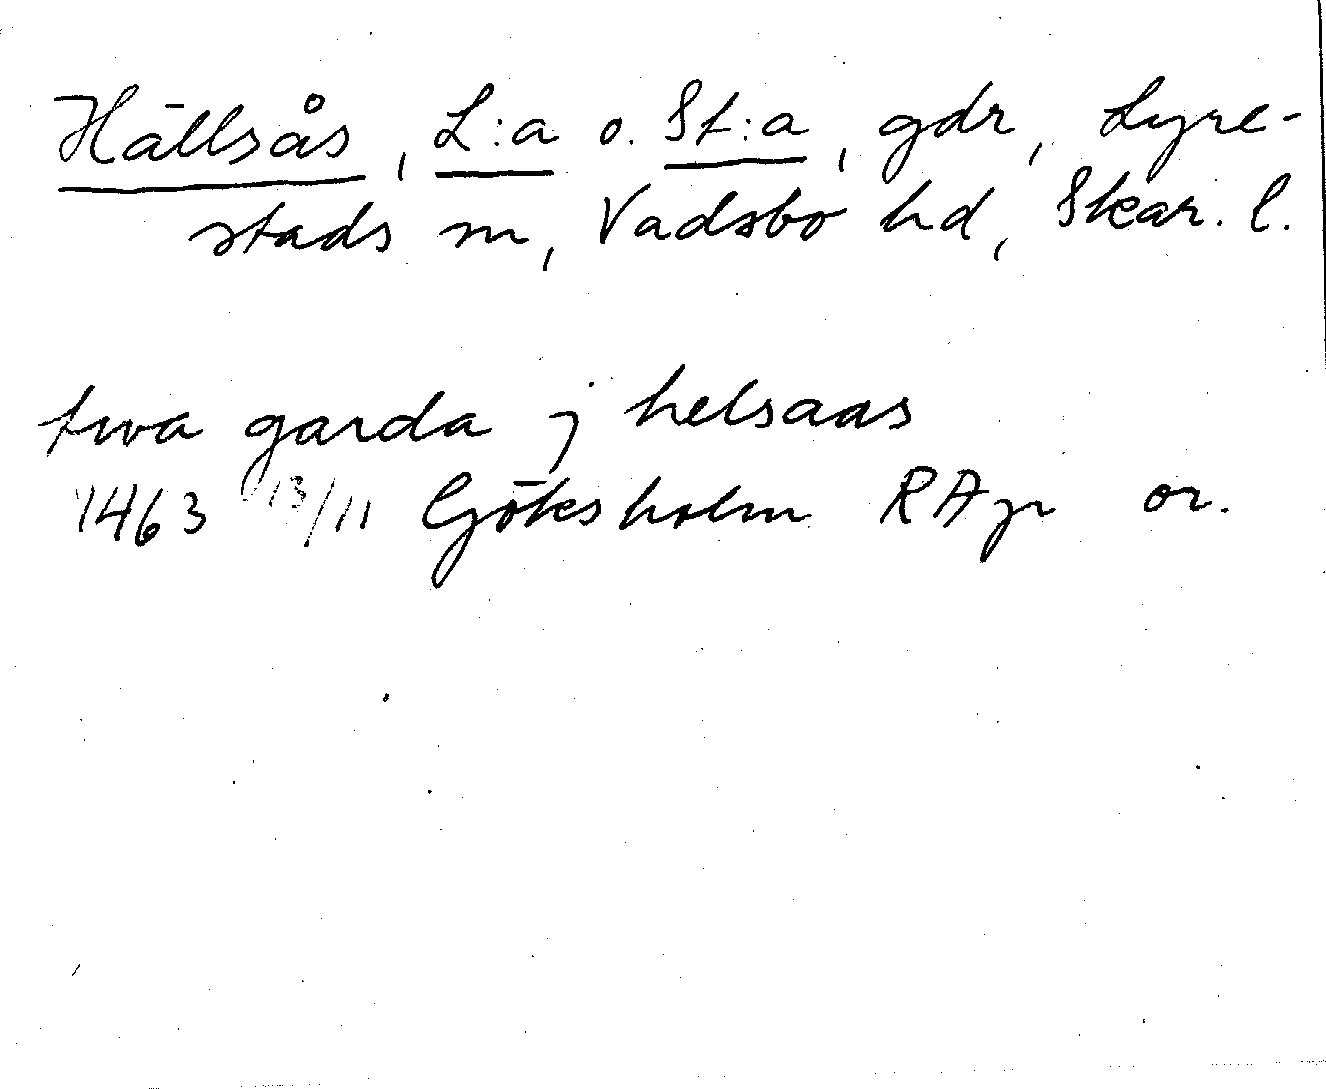 Hällsås, L:a o. St:a, gdr, Lyre-
stads sn, Vadsbo hd, Skar. l.
twa garda j helsaas
1463 13/11 Göksholm RAp or.